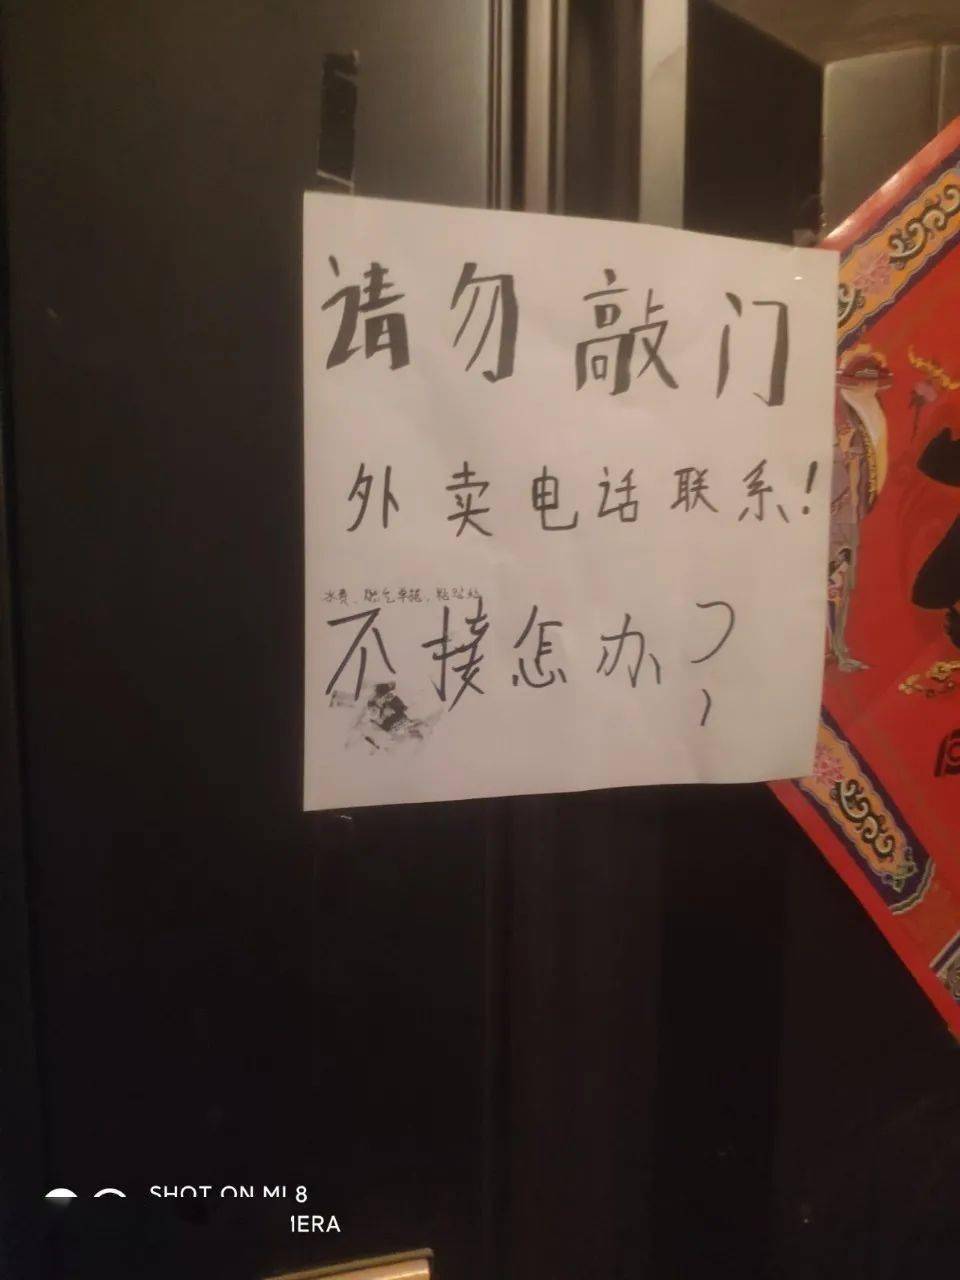 请勿敲门
外卖电话联系!
水费、燃气单据、粘贴处
不接怎办?
SHOT ON MI 8